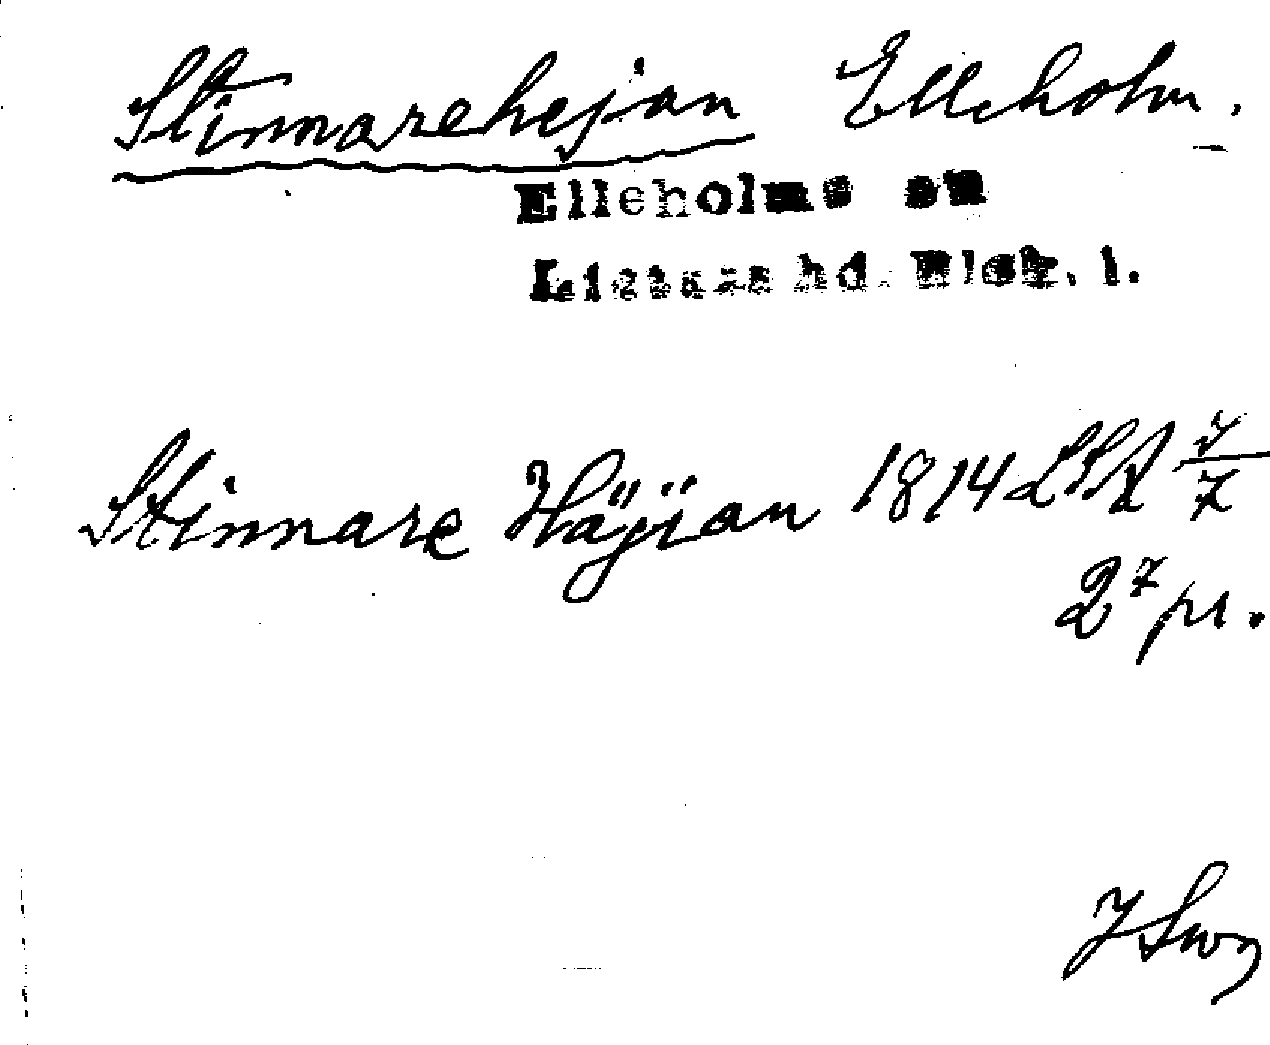 Stinnarehejan Elleholm.
Elleholms sn
Listers hd. Blek. l.
Stinnare Häjian 1814 LSA
2⁷ pr.